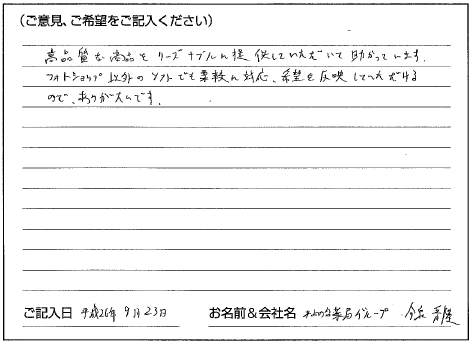 （ご意見、ご希望をご記入ください）
高品質な商品をリーズナブルに提供していただいて助かっています。
フォトショップ以外のソフトでも柔軟に対応、希望を反映していただける
ので、ありがたいです。
ご記入日 平成26年 9月 23日 お名前＆会社名 薬局グループ